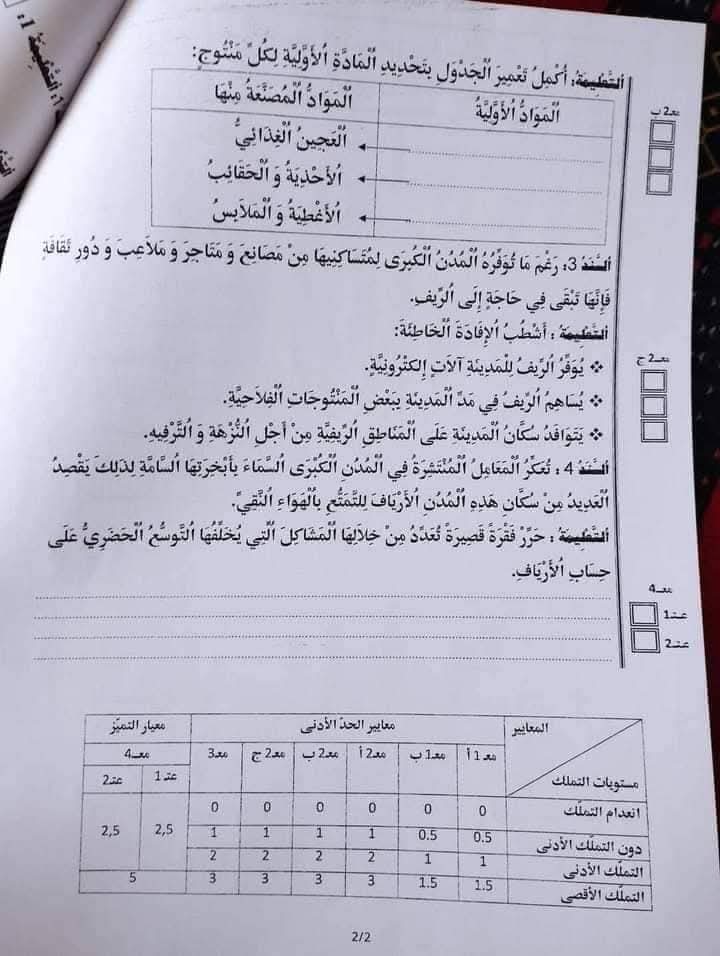 التعليمة: أُكْمِلُ تَعْمِيرَ الْجَدْوَلِ بِتَحْدِيدِ الْمَادَّةِ الْأَوَّلِيَّةِ لِكُلِّ مَنْتُوجٍ:
معـ2 ب
الْمَوَادُّ الْأَوَّلِيَّةُ الْمَوَادُّ الْمُصَنَّعَةُ مِنْهَا
الْعَجِينُ الْغِذَائِيُّ
الْأَحْذِيَةُ وَ الْحَقَائِبُ
الْأَغْطِيَةُ وَ الْمَلَابِسُ
السَّنَدُ 3: رَغْمَ مَا تُوَفِّرُهُ الْمُدُنُ الْكُبْرَى لِمُتَسَاكِنِيهَا مِنْ مَصَانِعَ وَ مَتَاجِرَ وَ مَلَاعِبَ وَ دُورِ ثَقَافَةٍ
فَإِنَّهَا تَبْقَى فِي حَاجَةٍ إِلَى الرِّيفِ.
التعليمة : أَشْطُبُ الْإِفَادَةَ الْخَاطِئَةَ:
معـ2 ج
❖ يُوَفِّرُ الرِّيفُ لِلْمَدِينَةِ آلَاتٍ إِلِكْتْرُونِيَّةٍ.
❖ يُسَاهِمُ الرِّيفُ فِي مَدِّ الْمَدِينَةِ بِبَعْضِ الْمَنْتُوجَاتِ الْفِلَاحِيَّةِ.
❖ يَتَوَافَدُ سُكَّانُ الْمَدِينَةِ عَلَى الْمَنَاطِقِ الرِّيفِيَّةِ مِنْ أَجْلِ النُّزْهَةِ وَ التَّرْفِيهِ.
السَّنَدُ 4 : تُعَكِّرُ الْمَعَامِلُ الْمُنْتَشِرَةُ فِي الْمُدُنِ الْكُبْرَى السَّمَاءَ بِأَبْخِرَتِهَا السَّامَّةِ لِذَلِكَ يَقْصِدُ
الْعَدِيدُ مِنْ سُكَّانِ هَذِهِ الْمُدُنِ الْأَرْيَافَ لِلتَّمَتُّعِ بِالْهَوَاءِ النَّقِيِّ.
التعليمة : حَرِّرْ فَقْرَةً قَصِيرَةً تُعَدِّدُ مِنْ خِلَالِهَا الْمَشَاكِلَ الَّتِي يُخَلِّفُهَا التَّوَسُّعُ الْحَضَرِيُّ عَلَى
حِسَابِ الْأَرْيَافِ.
معـ4
عتـ1
عتـ2
المعايير معايير الحدّ الأدنى معيار التميّز
مستويات التملك معـ1 أ معـ1 ب معـ2 أ معـ2 ب معـ2 ج معـ3 معـ4
عتـ1 عتـ2
انعدام التملّك 0 0 0 0 0 0
دون التملّك الأدنى 0.5 0.5 1 1 1 1 2,5 2,5
التملّك الأدنى 1 1 2 2 2 2
التملّك الأقصى 1.5 1.5 3 3 3 3 5
2/2